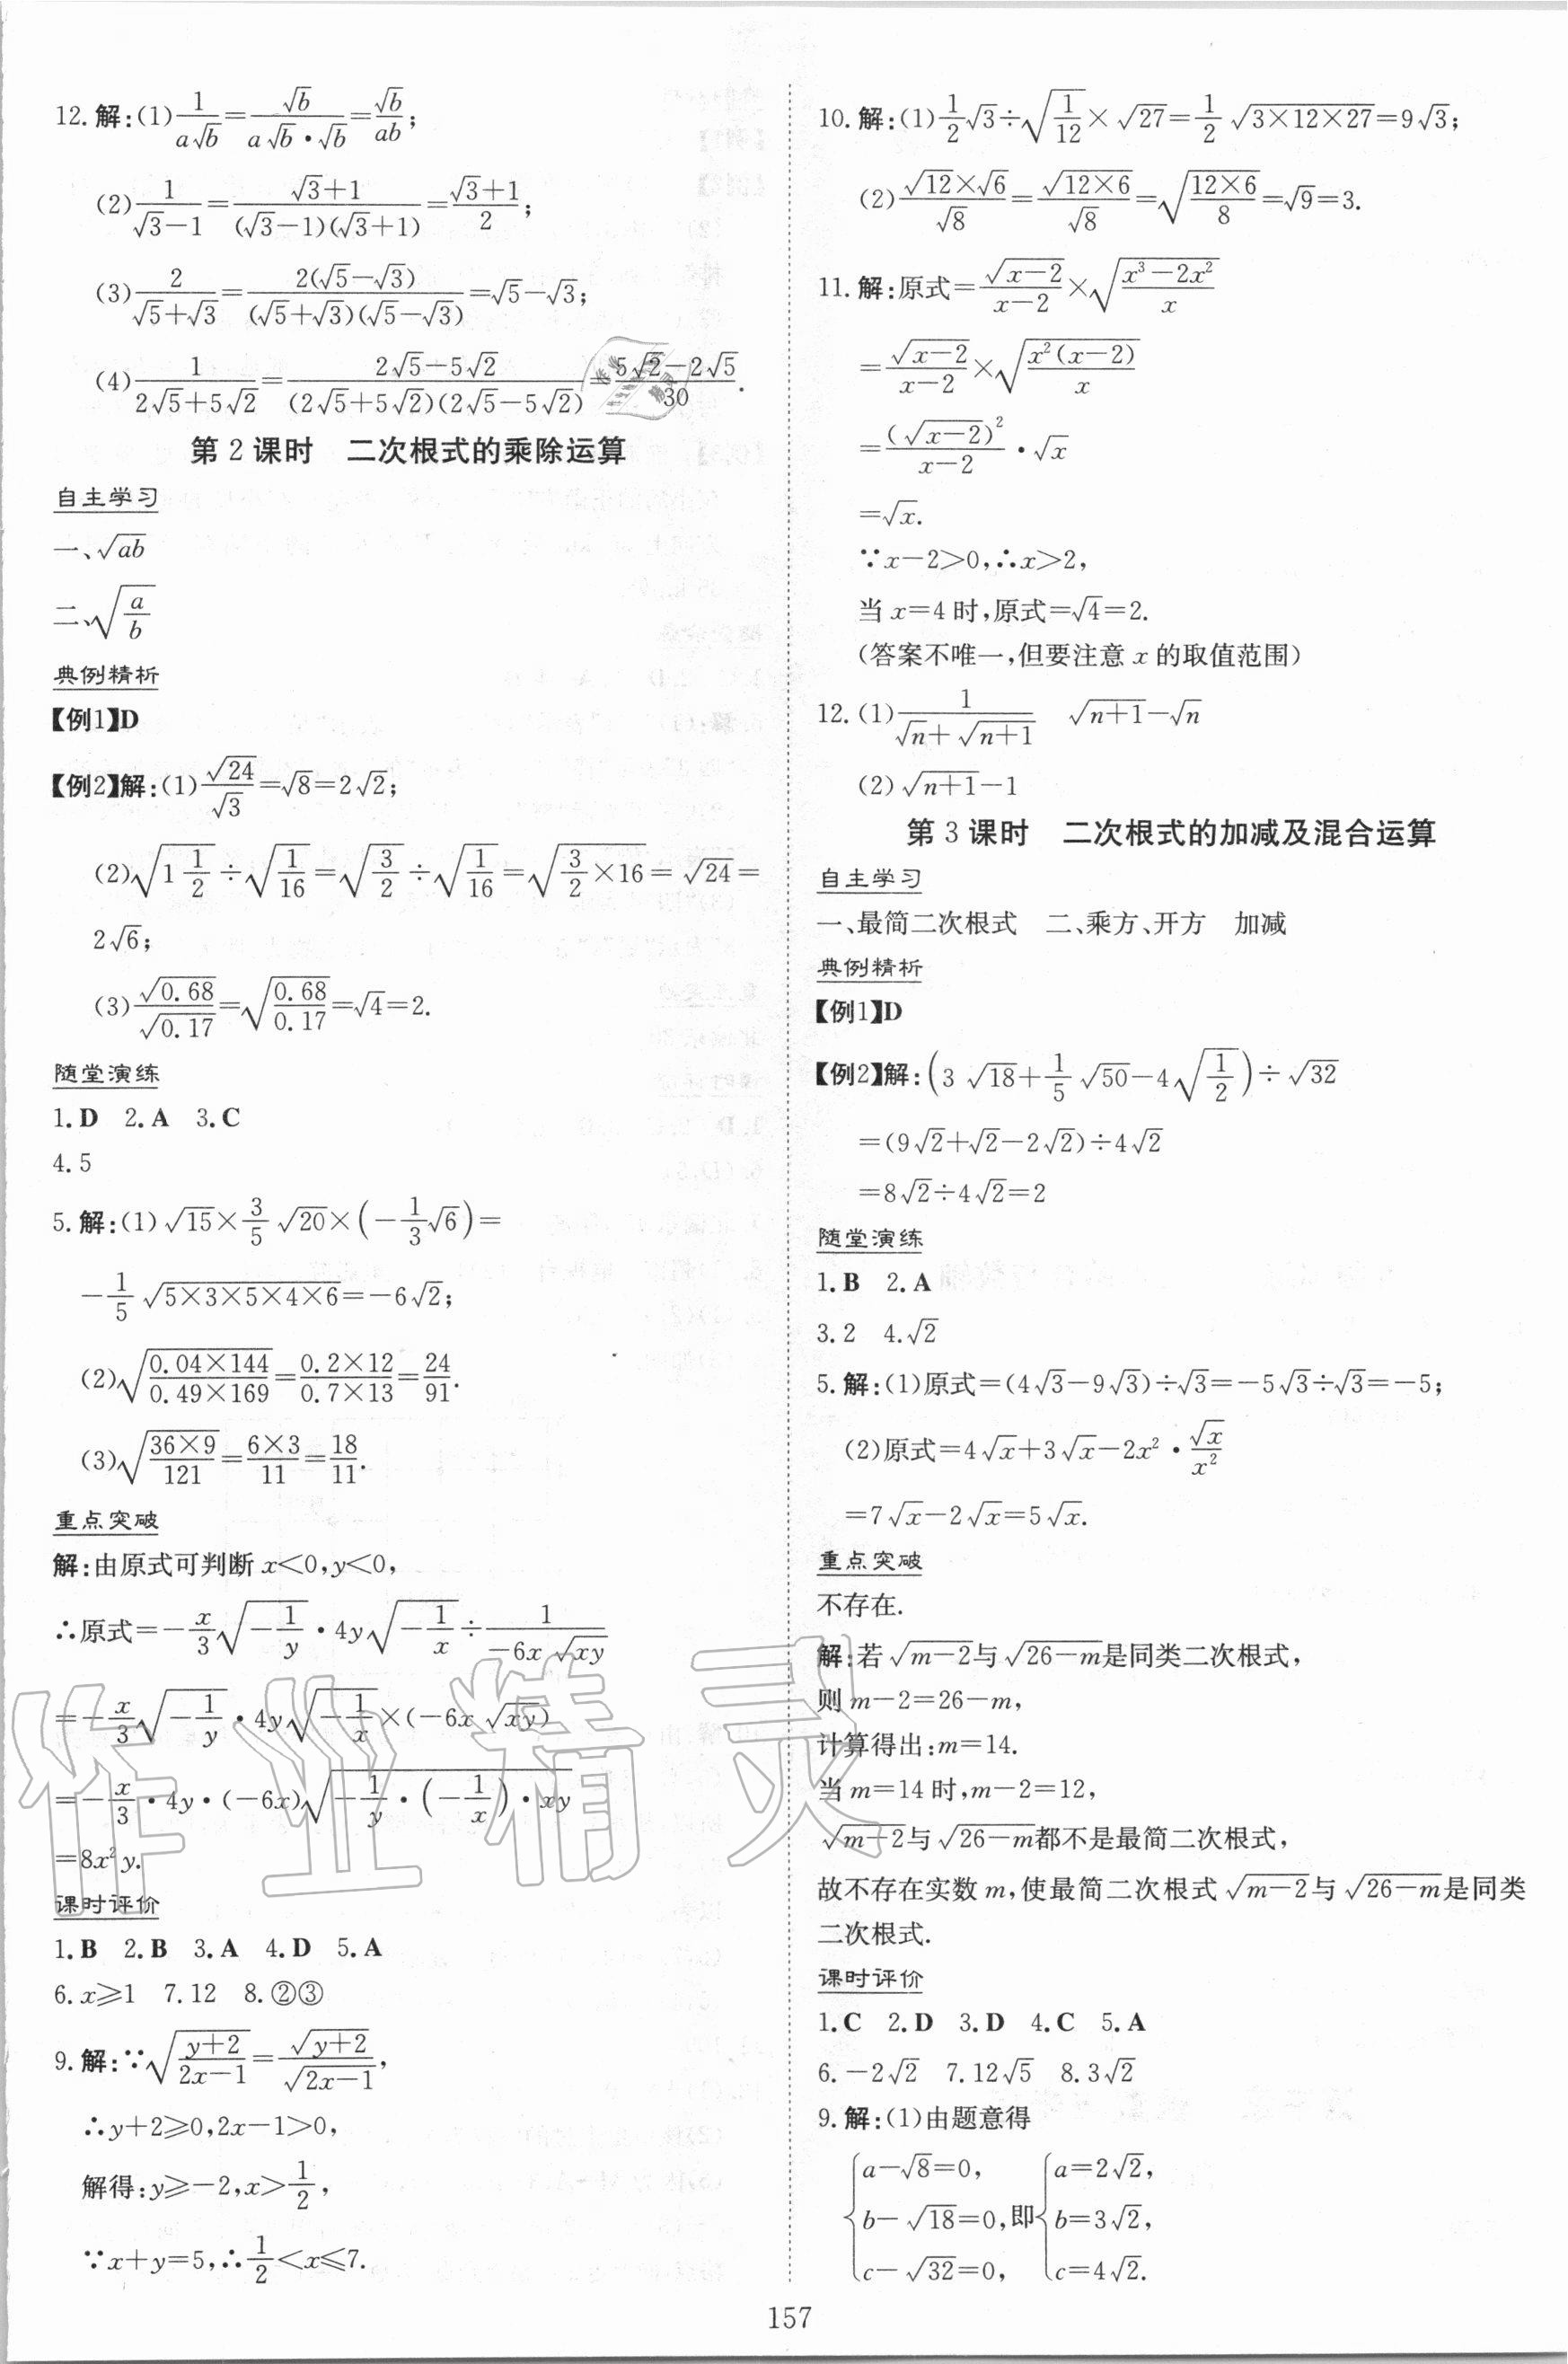 12.解:(1)1/(a√b)=√b/(a√b·√b)=√b/(ab);
(2)1/(√3-1)=(√3+1)/((√3-1)(√3+1))=(√3+1)/2;
(3)2/(√5+√3)=2(√5-√3)/((√5+√3)(√5-√3))=√5-√3;
(4)1/(2√5+5√2)=(2√5-5√2)/((2√5+5√2)(2√5-5√2))=(5√2-2√5)/30.
第2课时 二次根式的乘除运算
自主学习
一、√(ab)
二、√(a/b)
典例精析
【例1】D
【例2】解:(1)√24/√3=√8=2√2;
(2)√(1 1/2)÷√(1/16)=√(3/2)÷√(1/16)=√(3/2×16)=√24=
2√6;
(3)√0.68/√0.17=√(0.68/0.17)=√4=2.
随堂演练
1.D 2.A 3.C
4.5
5.解:(1)√15×3/5√20×(-1/3√6)=
-1/5√(5×3×5×4×6)=-6√2;
(2)√((0.04×144)/(0.49×169))=(0.2×12)/(0.7×13)=24/91.
(3)√((36×9)/121)=(6×3)/11=18/11.
重点突破
解:由原式可判断x<0,y<0,
∴原式=-x/3√(-1/y)·4y√(-1/x)÷1/(-6x√(xy))
=-x/3√(-1/y)·4y√(-1/x)×(-6x√(xy))
=-x/3·4y·(-6x)√(-1/y·(-1/x)·xy)
=8x²y.
课时评价
1.B 2.B 3.A 4.D 5.A
6.x⩾1 7.12 8.②③
9.解:∵√((y+2)/(2x-1))=√(y+2)/√(2x-1),
∴y+2⩾0,2x-1>0,
解得:y⩾-2,x>1/2,
∵x+y=5,∴1/2<x⩽7.
10.解:(1)1/2√3÷√(1/12)×√27=1/2√(3×12×27)=9√3;
(2)(√12×√6)/√8=√(12×6)/√8=√((12×6)/8)=√9=3.
11.解:原式=√(x-2)/(x-2)×√((x³-2x²)/x)
=√(x-2)/(x-2)×√(x²(x-2)/x)
=(√(x-2))²/(x-2)·√x
=√x.
∵x-2>0,∴x>2,
当x=4时,原式=√4=2.
(答案不唯一,但要注意x的取值范围)
12.(1)1/(√n+√(n+1)) √(n+1)-√n
(2)√(n+1)-1
第3课时 二次根式的加减及混合运算
自主学习
一、最简二次根式 二、乘方、开方 加减
典例精析
【例1】D
【例2】解:(3√18+1/5√50-4√(1/2))÷√32
=(9√2+√2-2√2)÷4√2
=8√2÷4√2=2
随堂演练
1.B 2.A
3.2 4.√2
5.解:(1)原式=(4√3-9√3)÷√3=-5√3÷√3=-5;
(2)原式=4√x+3√x-2x²·√x/x²
=7√x-2√x=5√x.
重点突破
不存在.
解:若√(m-2)与√(26-m)是同类二次根式,
则m-2=26-m,
计算得出:m=14.
当m=14时,m-2=12,
√(m-2)与√(26-m)都不是最简二次根式,
故不存在实数m,使最简二次根式√(m-2)与√(26-m)是同类
二次根式.
课时评价
1.C 2.D 3.D 4.C 5.A
6.-2√2 7.12√5 8.3√2
9.解:(1)由题意得
{a-√8=0, {a=2√2,
b-√18=0,即 b=3√2,
c-√32=0, c=4√2.
157
作业精灵